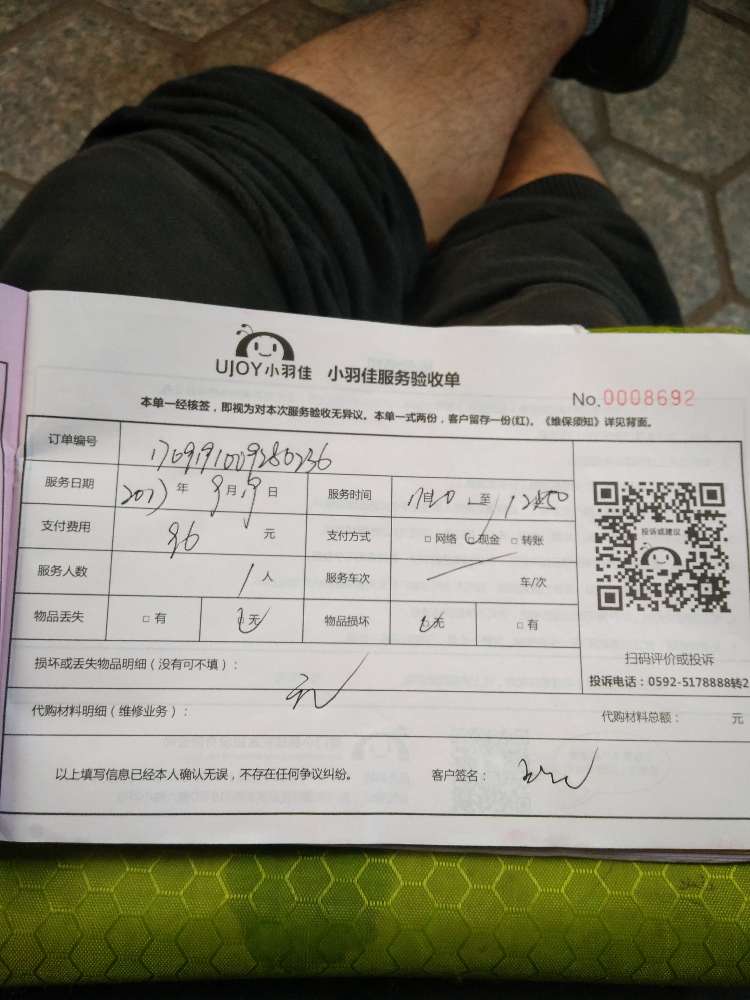 UJOY小羽佳 小羽佳服务验收单
No.0008692
本单一经核签，即视为对本次服务验收无异议。本单一式两份，客户留存一份(红)。《维保须知》详见背面。
订单编号
服务日期 2017年9月19日 服务时间 至
支付费用 96 元 支付方式 □网络 □现金 □转账
服务人数 1人 服务车次 车/次
物品丢失 □有 □无 物品损坏 □无 □有
投诉或建议
扫码评价或投诉
投诉电话：0592-5178888转2
损坏或丢失物品明细（没有可不填）：
无
代购材料明细（维修业务）： 代购材料总额： 元
以上填写信息已经本人确认无误，不存在任何争议纠纷。 客户签名：